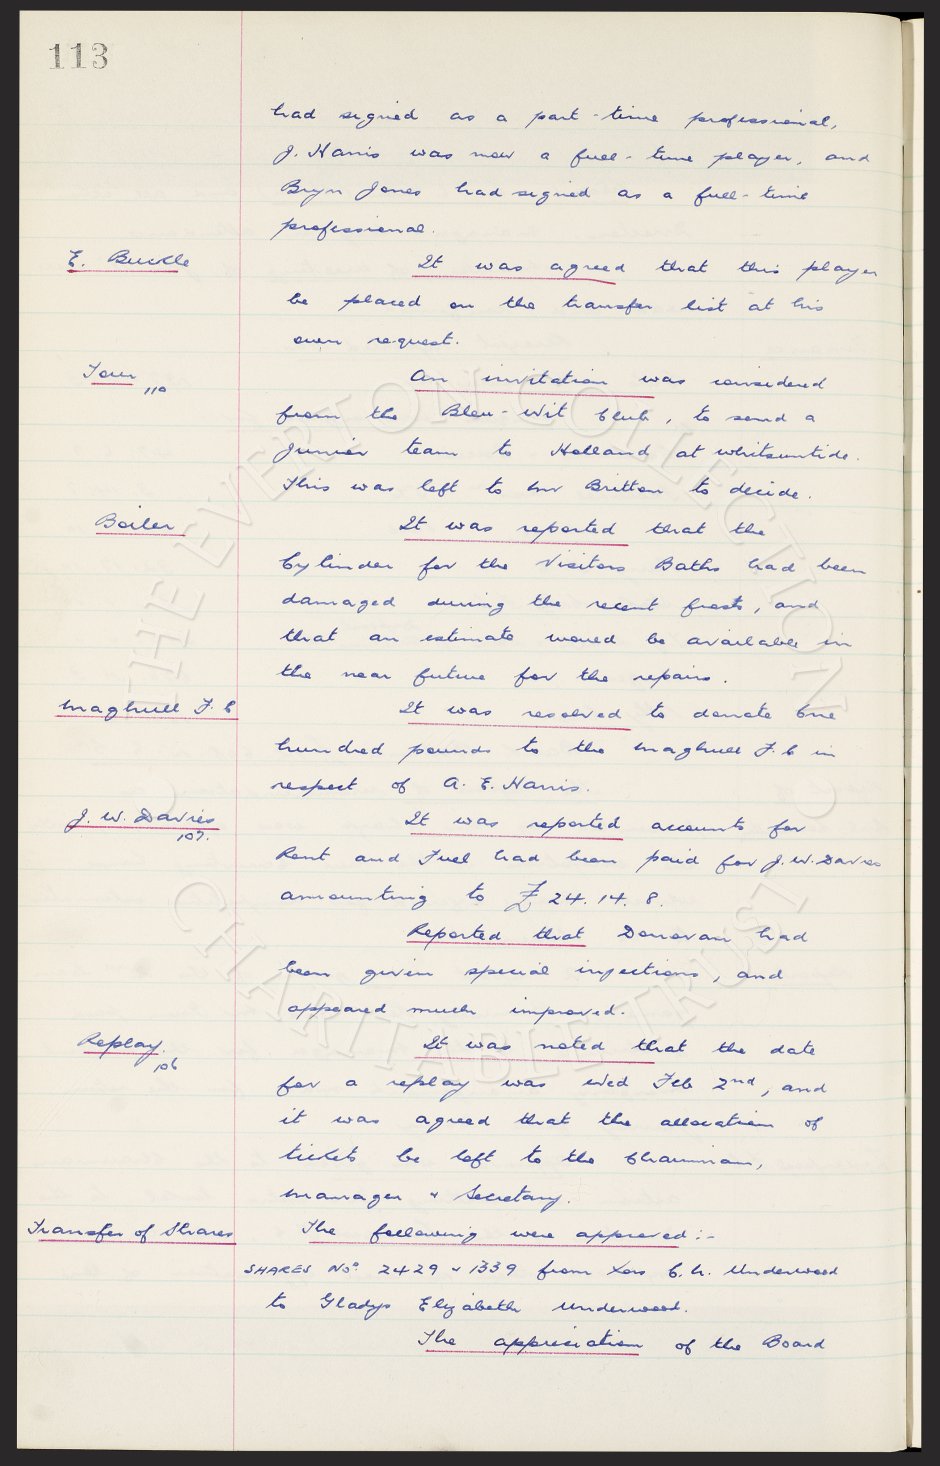 113
had signed as a part-time professional,
J. Harris was now a full-time player, and
Bryn Jones had signed as a full-time
professional.
E. Buckle
It was agreed that this player
be placed on the transfer list at his
own request.
Tour 110
An invitation was considered
from the Blau-Wit Club, to send a
Junior team to Holland at Whitsuntide.
This was left to Mr Britton to decide.
Boiler
It was reported that the
Cylinder for the Visitors Baths had been
damaged during the recent frosts, and
that an estimate would be available in
the near future for the repairs.
Maghull F.C
It was resolved to donate One
hundred pounds to the Maghull F.C in
respect of A. E. Harris.
J. W. Davies 107.
It was reported accounts for
Rent and Fuel had been paid for J. W. Davies
amounting to £24.14.8.
Reported that Donovan had
been given special injections, and
appeared much improved.
Replay. 106
It was noted that the date
for a replay was Wed Feb 2nd, and
it was agreed that the allocation of
tickets be left to the Chairman,
Manager & Secretary.
Transfer of Shares
The following were approved:-
SHARES Nos. 2429 & 1339 from Xors C. H. Underwood
to Gladys Elizabeth Underwood.
The appreciation of the Board
THE EVERTON COLLECTION
CHARITABLE TRUST